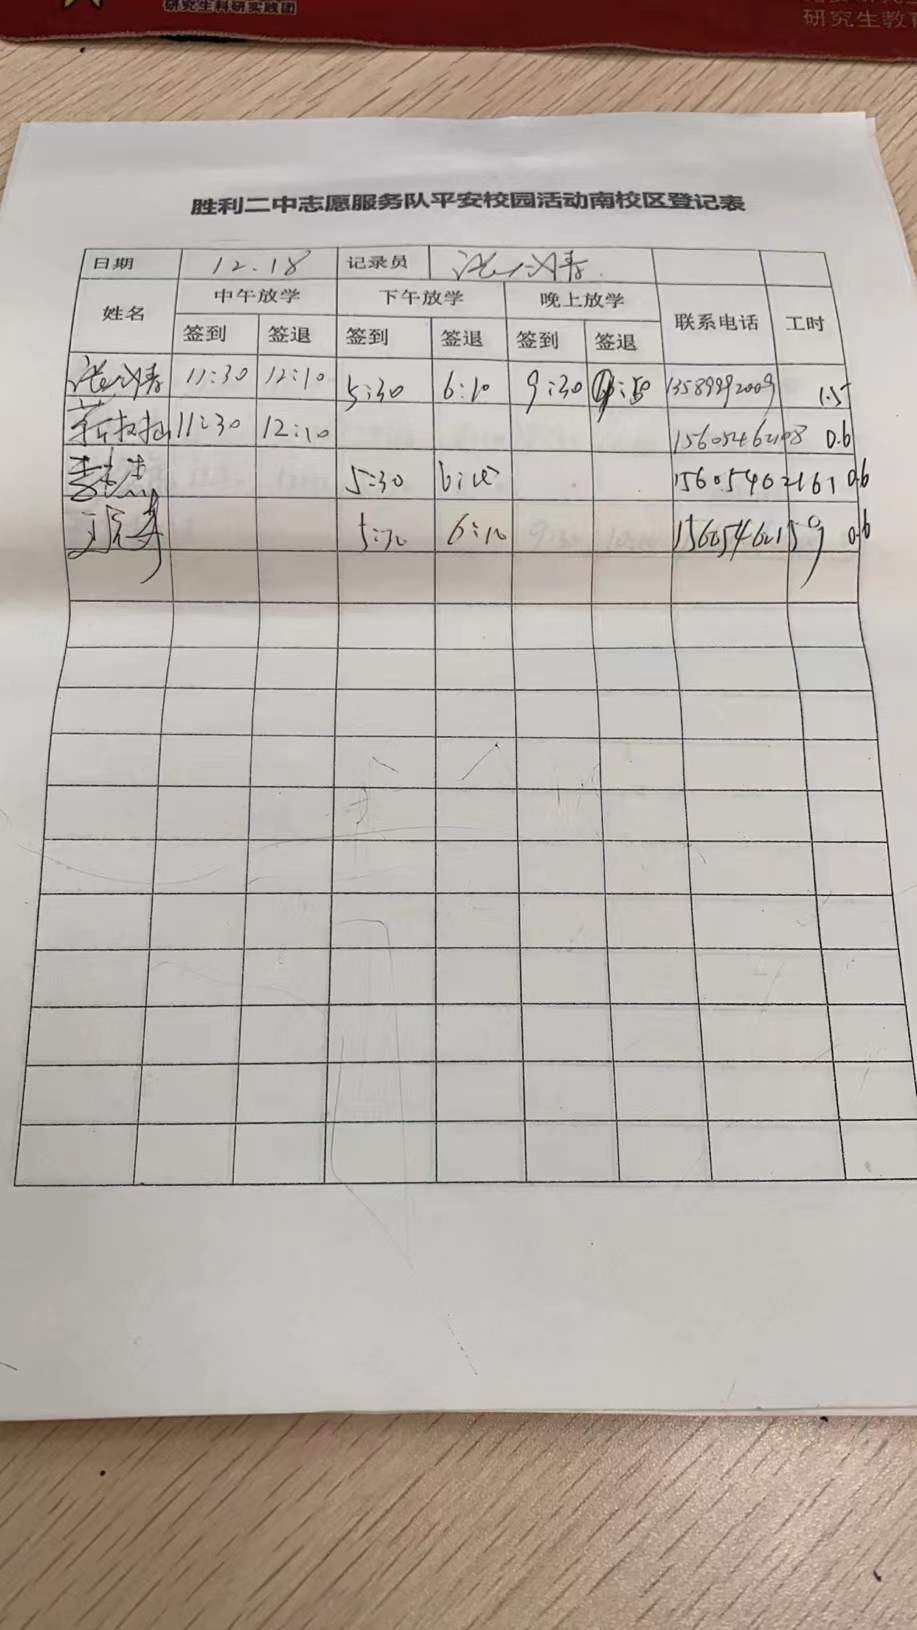 研究生科研实践团
研究生教育
胜利二中志愿服务队平安校园活动南校区登记表
日期 12.18 记录员
姓名 中午放学 下午放学 晚上放学 联系电话 工时
签到 签退 签到 签退 签到 签退
11:30 12:10 5:30 6:10 9:30 13589992009 1.5
11:30 12:10 15605462108 0.6
5:30 6:10 15605462161 0.6
5:30 6:10 15605462159 0.6